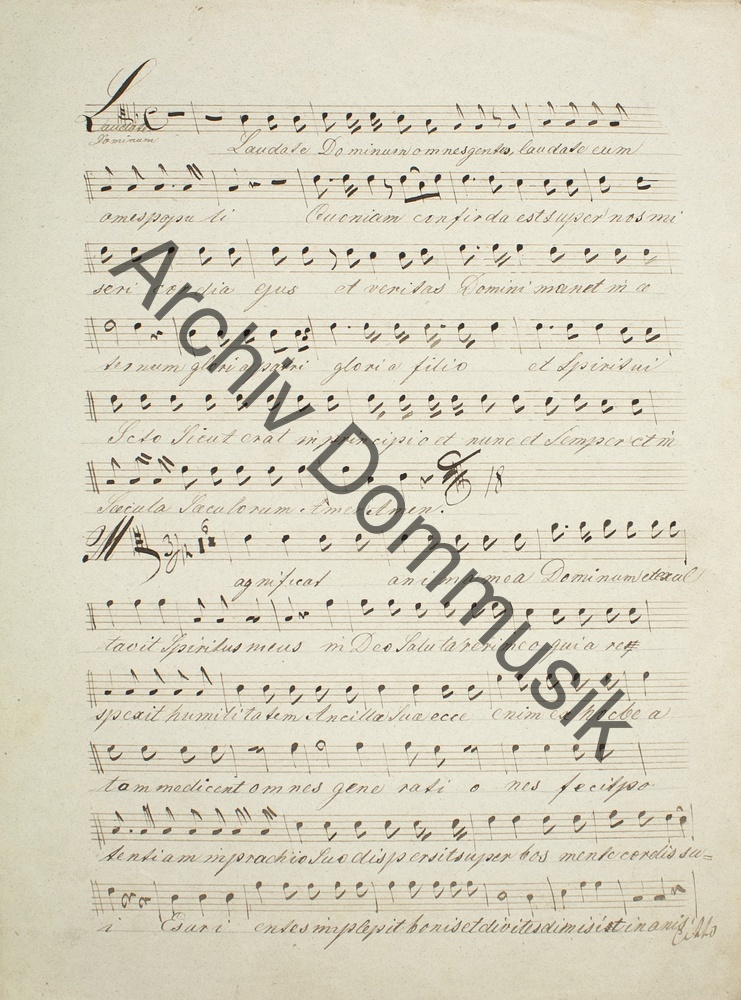 Laudate
Dominum
Laudate Dominum omnes gentes, laudate eum
omes popu li Quoniam confirda est super nos mi
seri cordia ejus et veritas Domini manet in æ
ternum gloria patri gloria filio et Spiritui
Scto Sicut erat in principio et nunc et Semper et in
Sæcula Sæculorum Amen Amen.
M
agnificat anima mea Dominum et exul
tavit Spiritus meus in Deo Salutari meo quia re
spexit humilitatem Ancillæ Suæ ecce enim ex hoc be a
tam medicent omnes gene rati o nes fecit po
tentiam in prachio Suo dispersit super bos mente cordis su=
i Esuri entes implepit bonis et divites dimisit inanis
Archiv Dommusik